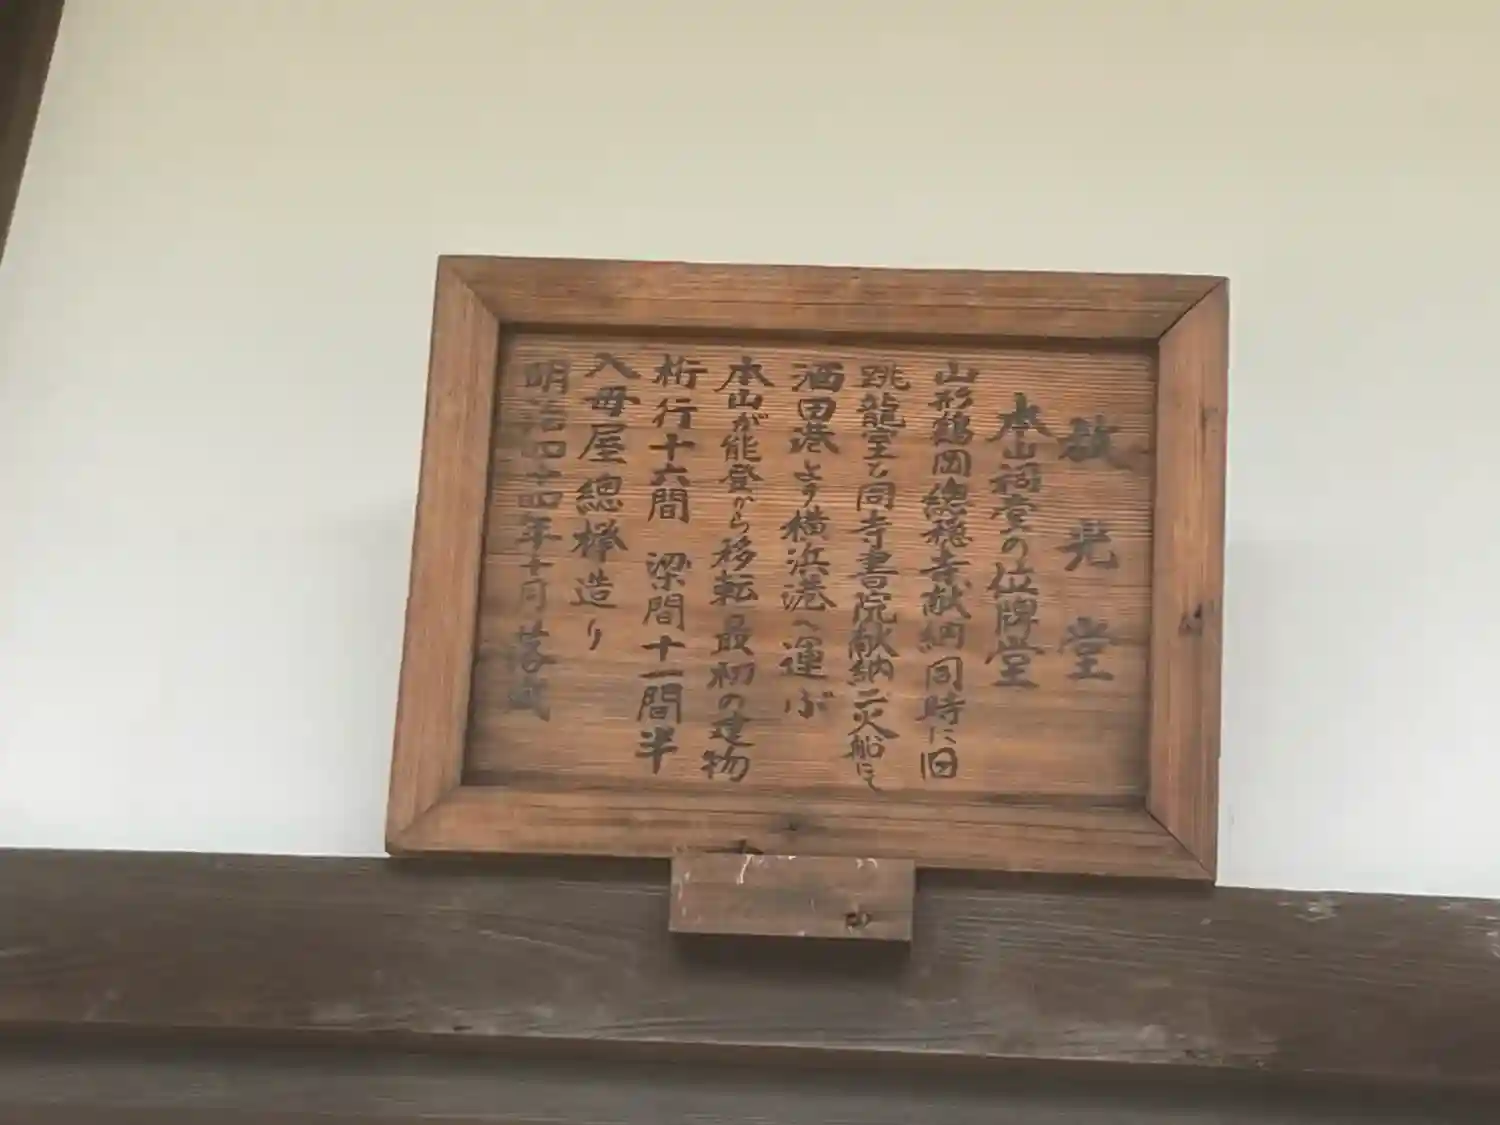 放光堂
本山祠堂の位牌堂
山形鶴岡總穏寺献納同時に旧
跳龍室も同寺書院献納二火船にて
酒田港より横浜港へ運ぶ
本山が能登から移転最初の建物
桁行十六間 梁間十一間半
入母屋總欅造り
明治四十四年十月落成